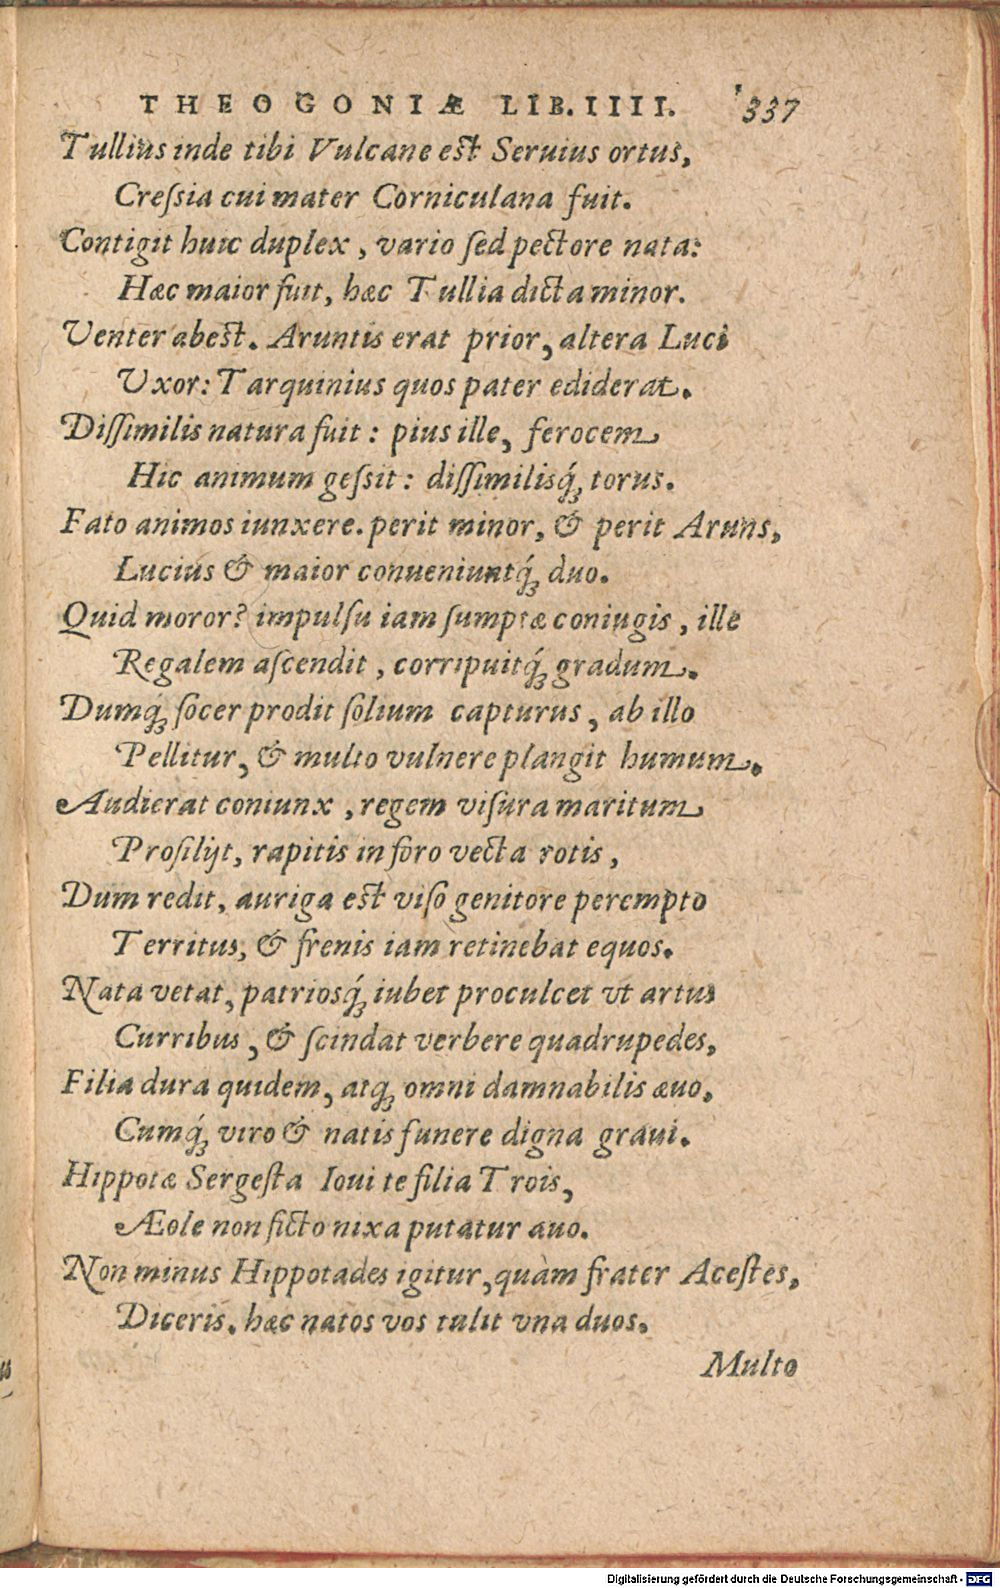 THEOGONIÆ LIB. IIII. 337
Tullius inde tibi Vulcane est Seruius ortus,
Creſsia cui mater Corniculana fuit.
Contigit huic duplex, vario ſed pectore nata:
Hæc maior fuit, hæc Tullia dicta minor.
Venter abest. Aruntis erat prior, altera Luci
Vxor: Tarquinius quos pater ediderat.
Diſſimilis natura fuit: pius ille, ferocem
Hic animum geſsit: diſſimilisq́; torus.
Fato animos iunxere. perit minor, & perit Aruns,
Lucius & maior conueniuntq́; duo.
Quid moror? impulſu iam ſumptæ coniugis, ille
Regalem aſcendit, corripuitq́; gradum.
Dumq́; ſocer prodit ſolium capturus, ab illo
Pellitur, & multo vulnere plangit humum.
Audierat coniunx, regem viſura maritum
Proſilijt, rapitis in foro vecta rotis,
Dum redit, auriga est viſo genitore perempto
Territus, & frenis iam retinebat equos.
Nata vetat, patriosq́; iubet proculcet vt artus
Curribus, & ſcindat verbere quadrupedes,
Filia dura quidem, atq; omni damnabilis æuo,
Cumq́; viro & natis funere digna graui.
Hippotæ Sergeſta Ioui te filia Trois,
Æole non ficto nixa putatur auo.
Non minus Hippotades igitur, quàm frater Aceſtes,
Diceris. hæc natos vos tulit vna duos.
Multo
Digitalisierung gefördert durch die Deutsche Forschungsgemeinschaft - DFG